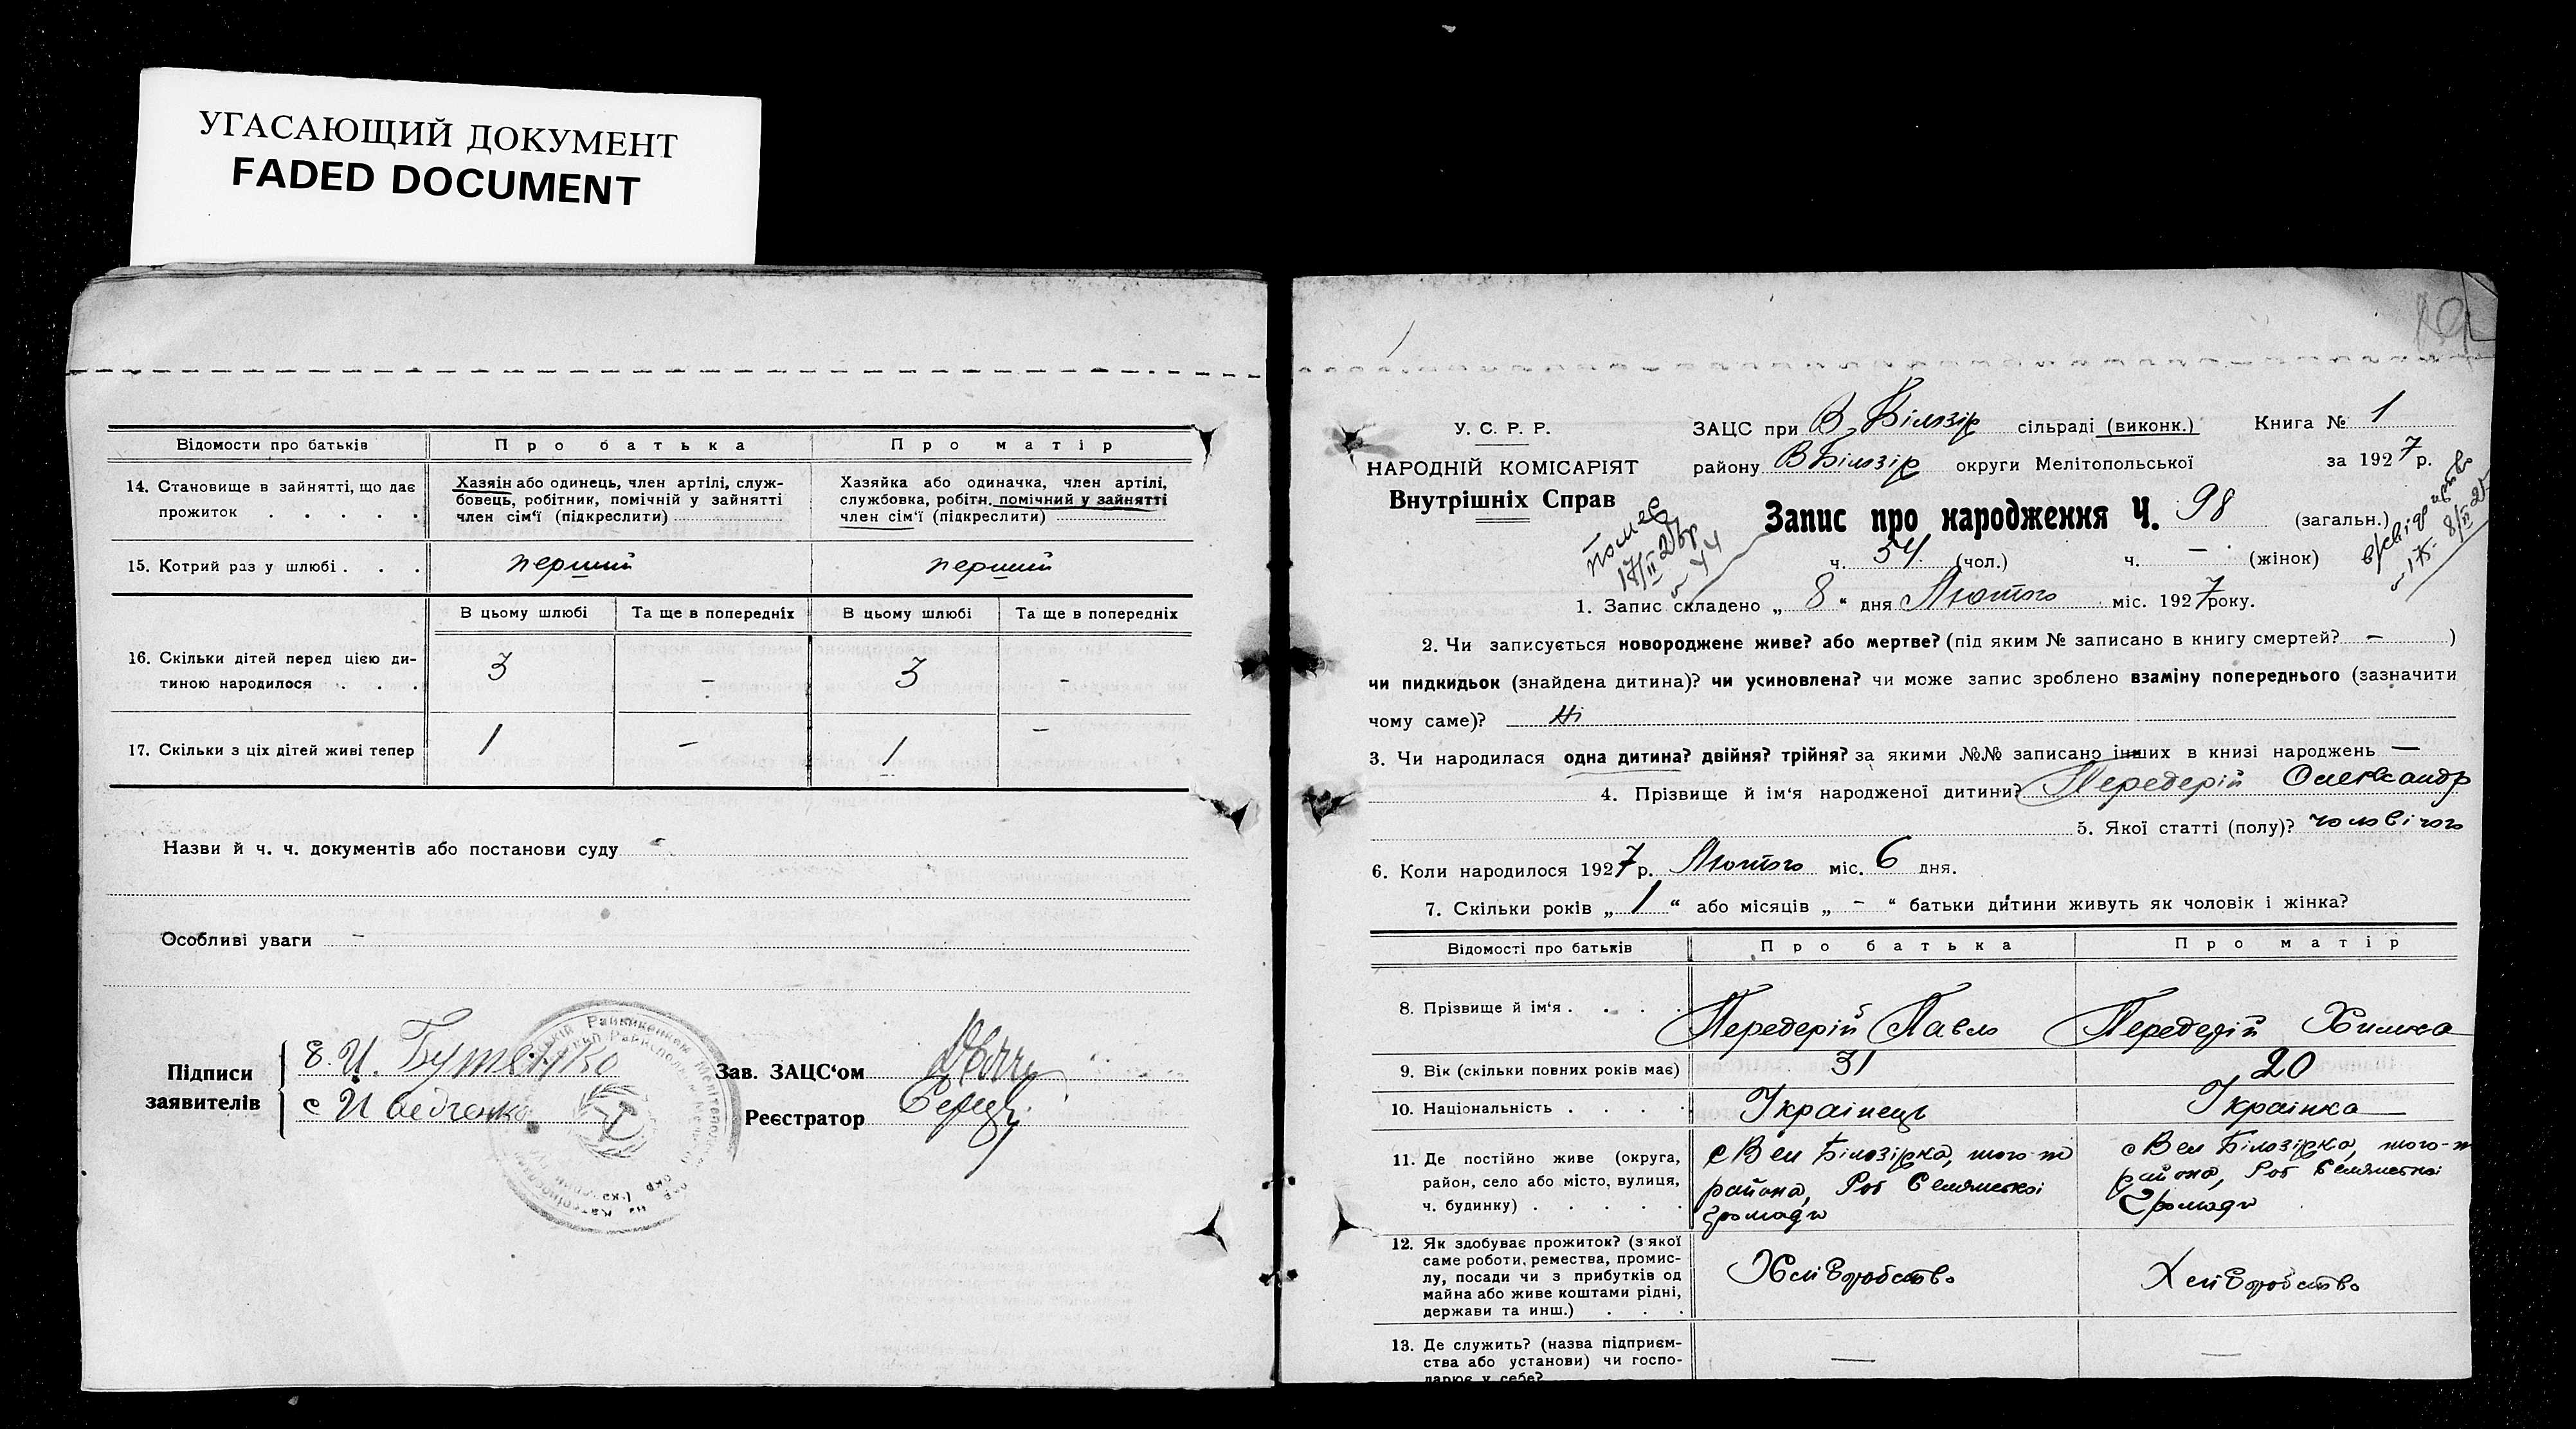 УГАСАЮЩИЙ ДОКУМЕНТ
FADED DOCUMENT
Відомости про батьків Про батька Про матір
14. Становище в зайнятті, що дає прожиток . . . . .
Хазяін або одинець, член артілі, служ-
бовець, робітник, помічній у зайнятті
член сім'ї (підкреслити)
Хазяйка або одиначка, член артілі,
службовка, робітн. помічний у зайнятті
член сім'ї (підкреслити)
15. Котрий раз у шлюбі . . . перший перший
В цьому шлюбі Та ще в попередніх В цьому шлюбі Та ще в попередніх
16. Скільки дітей перед цією ди-
тиною народилося . . . 3 - 3 -
17. Скільки з ціх дітей живі тепер 1 - 1 -
Назви й ч. ч. документів або постанови суду -
Особливі уваги -
Підписи
заявителів
Бутенко
Зав. ЗАЦС'ом
Реєстратор
У. С. Р. Р.
НАРОДНІЙ КОМІСАРІЯТ
Внутрішніх Справ
ЗАЦС при В. Білозір сільраді (виконк.) Книга № 1
району В Білозір округи Мелітопольської за 1927 р.
Запис про народження Ч. 98 (загальн.)
ч. 54. (чол.) ч. — (жінок)
1. Запис складено „ 8 “ дня Лютого міс. 1927 року.
2. Чи записується новороджене живе? або мертве? (під яким № записано в книгу смертей? — )
чи пидкидьок (знайдена дитина)? чи усиновлена? чи може запис зроблено взаміну попереднього (зазначити
чому саме)? Ні
3. Чи народилася одна дитина? двійня? трійня? за якими №№ записано інших в книзі народжень —
4. Прізвище й ім'я народженої дитини? Передерій Олександр
5. Якої статті (полу)? чоловічого
6. Коли народилося 1927 р. Лютого міс. 6 дня.
7. Скільки років „ 1 “ або місяців „ - “ батьки дитини живуть як чоловік і жінка?
Відомості про батьків Про батька Про матір
8. Прізвище й ім'я . . . . Передерій Павло Передерій Химка
9. Вік (скільки повних років має) 31 20
10. Національність . . . . Українець Українка
11. Де постійно живе (округа,
район, село або місто, вулиця,
ч. будинку) . . . . .
с Вел Білозірка, того-ж
района,
громади
с Вел Білозірка, того-ж
района,
Громади
12. Як здобуває прожиток? (з якої
саме роботи, ремества, промис-
лу, посади чи з прибутків од
майна або живе коштами рідні,
держави та инш.) . . .
Хліборобство Хліборобство
13. Де служить? (назва підприєм-
ства або установи) чи госпо-
дарює у себе? — —